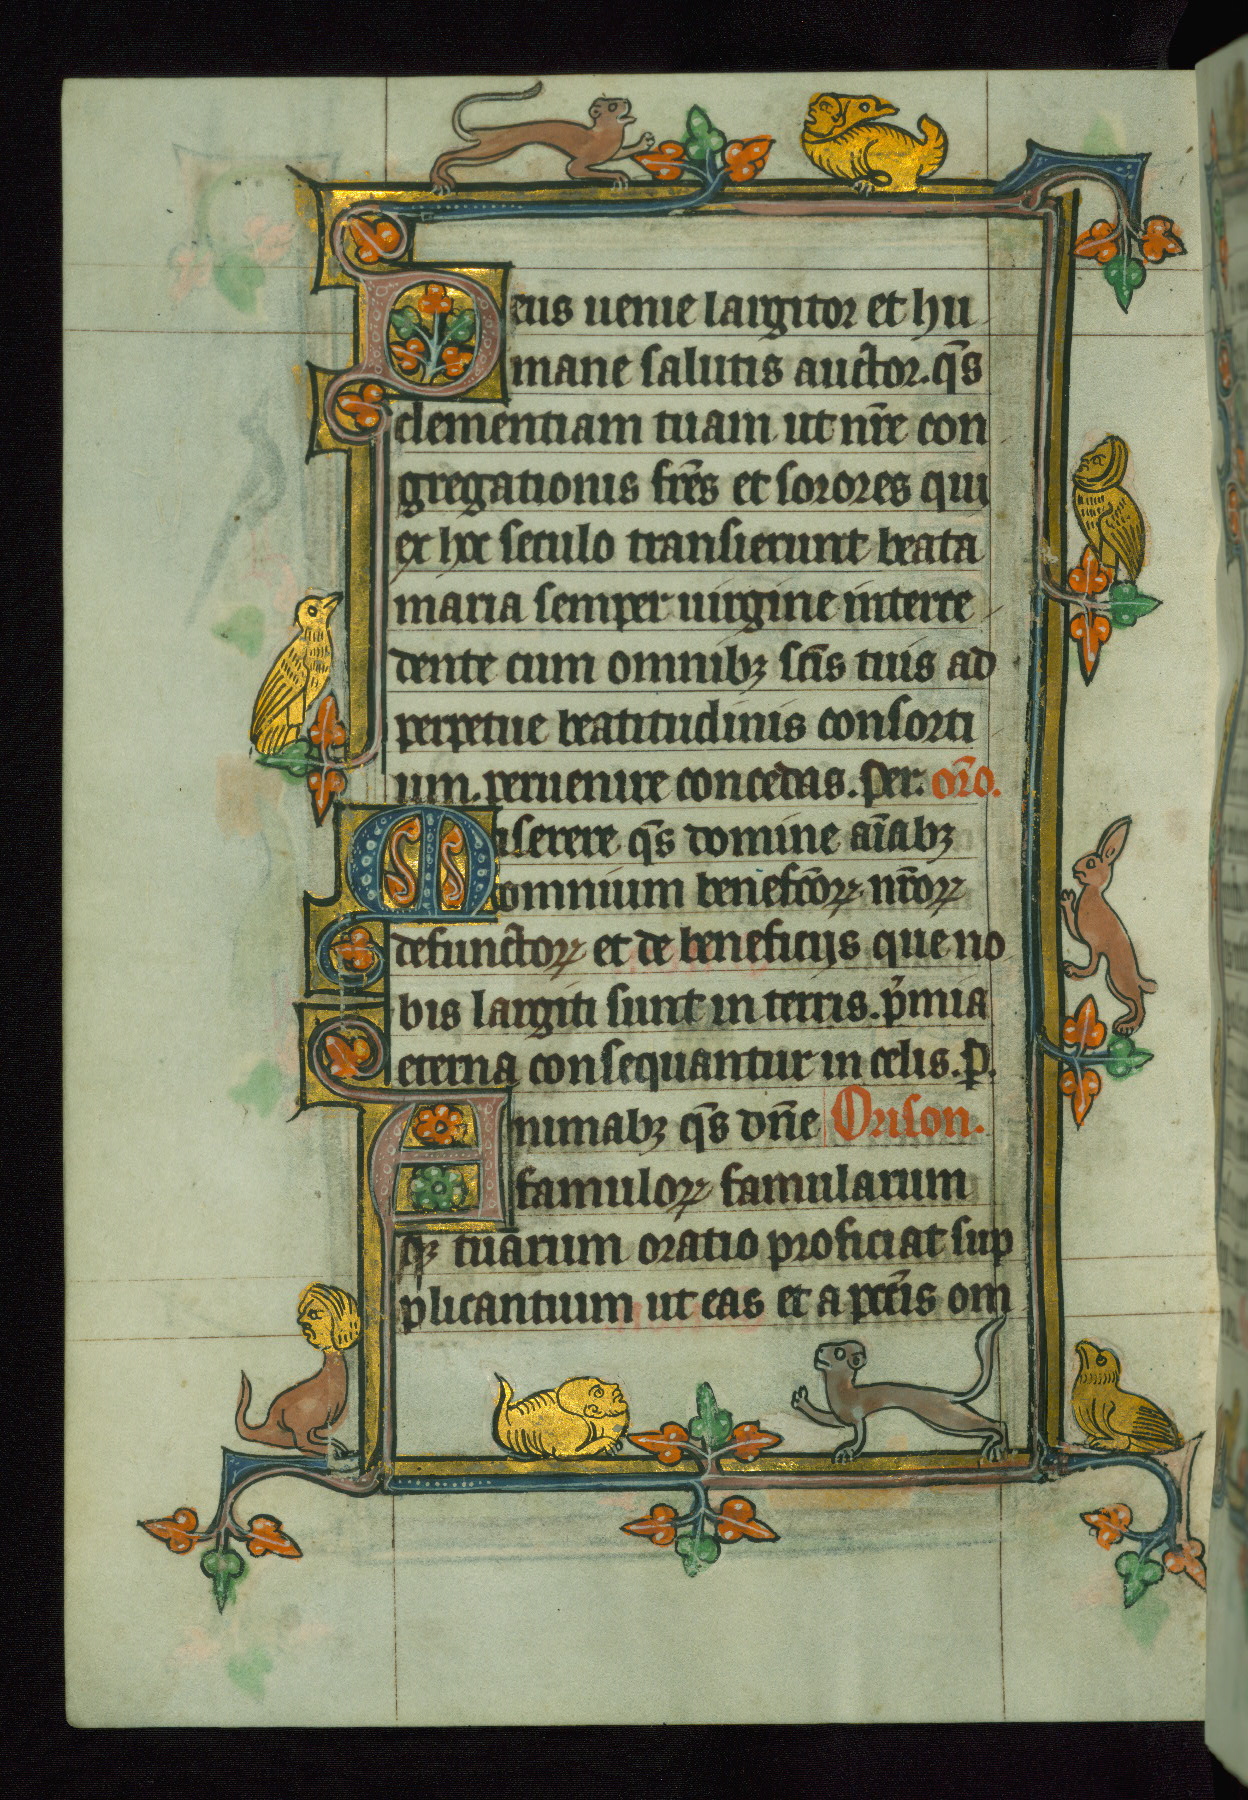 Deus uenie largitor et hu
mane salutis auctor. q̄s
clementiam tuam ut nr̄e con
gregationis fr̄es et sorores qui
ex hoc seculo transierunt beata
maria semper uirgine interce
dente cum omnibꝫ sc̄is tuis ad
perpetue beatitudinis consorti
um. peruenire concedas. Per. or̄o.
Miserere q̄s domine aīabꝫ
omnium benefc̄oꝝ nr̄oꝝ
defunctoꝝ et de beneficijs que no
bis largiti sunt in terris. p̄mia
eterna consequantur in celis. P̄.
Animabꝫ q̄s dn̄e Orison.
famuloꝝ famularum
qꝫ tuarum oratio proficiat sup
plicantium ut eas et a pcc̄is om